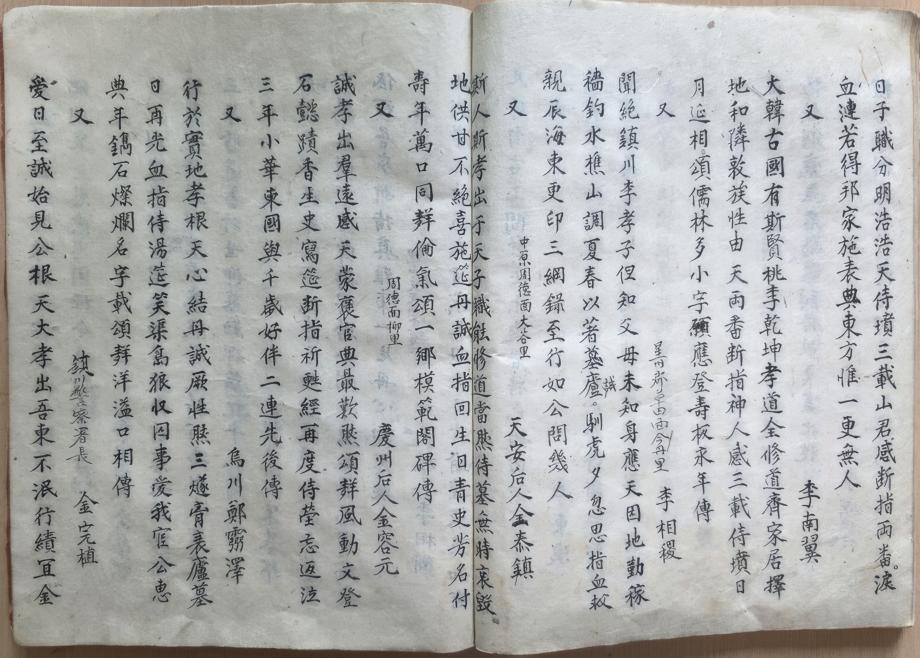 日子職分明浩浩天侍墳三載山君感斷指兩畨淚
血漣若得邦家施表典東方惟一更無人
又
李南翼
大韓古國有斯賢桃李乾坤孝道全修道齊家居擇
地和隣敦族性由天兩畨斷指神人感三載侍墳日
月延相頌儒林多小字願應登壽板永年傳
又
李相稷
聞絶鎮川李孝子但知父母未知身應天因地勤稼
穡釣水樵山調夏春以著墓廬誠馴虎夕忽思指血救
親辰海東更印三綱錄至行如公問幾人
又
中原周德面大谷里
天安后人金泰鎮
斯人斯孝出于天子職能修道當然侍墓無時哀毁
地供甘不絶喜施筵丹誠血指回生日青史芳名付
壽年萬口同群倫氣頌一鄉模範閣碑傳
又
周德面柳里
慶州后人金容元
誠孝出羣遠感天蒙褒官典最歎然頌群風動文登
石懿蹟香生史寫筵斷指祈甦經再度侍塋忘返泣
三年小華東國與千歲好伴二連先後傳
又
烏川鄭
澤
行於實地孝根天心結丹誠厥性然三燧膏表廬墓
日再光血指侍湯筵笑渠島狼収囚事愛我官公惠
典年鐫石燦爛名字載頌群洋溢口相傳
又
鎮川警察署長
金完植
愛日至誠始見公根天大孝出吾東不泯行績宜金